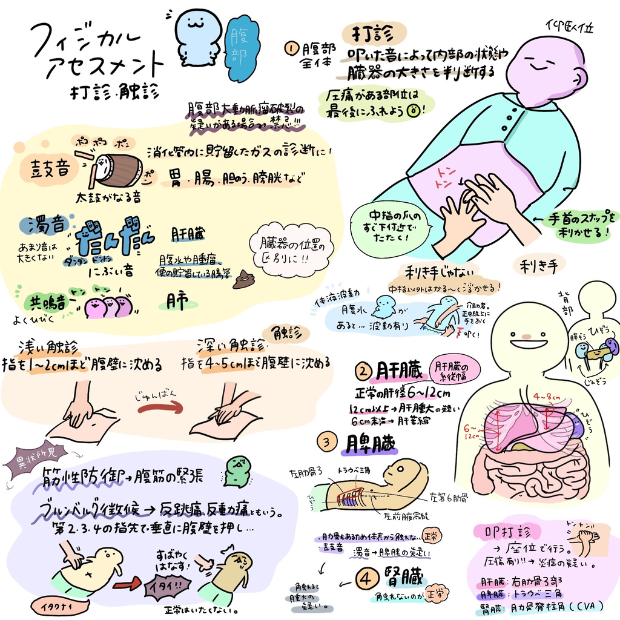 フィジカル
アセスメント
打診・触診
腹部
① 腹部全体
打診
叩いた音によって内部の状態や
臓器の大きさを判断する
仰臥位
圧痛がある部位は
最後にふれよう!
腹部大動脈瘤破裂の
疑いがある場合は禁忌!!!
鼓音
ポコ ポコ ポン
ポン
太鼓がなる音
消化管内に貯留したガスの診断に!
胃・腸、胆のう、膀胱など
濁音
あまり音は
大きくない
だんだん
にぶい音
肝臓
腹水や腫瘤、
便の貯留している腸管
臓器の位置の
区別に!!
共鳴音
よくひびく
肺
トン
トン
中指の爪の
すぐ下付近で
たたく!
手首のスナップを
利かせる!
利き手じゃない
中指以外はかる〜く浮かせる!
利き手
浅い触診
指を1〜2cmほど腹壁に沈める
触診
深い触診
指を4〜5cmほど腹壁に沈める
じゅんばん
体液波動
腹水が
あると…波動有り
叩く!
背部
ひぞう
じんぞう
② 肝臓
肝臓の
縦幅
正常の肝径6〜12cm
12cm以上→肝腫大の疑い
6cm未満→肝萎縮
4〜8cm
6〜
12cm
ひぞう
③ 脾臓
左肋骨弓
トラウベ三角
左第6肋骨
左前腋窩線
正常
鼓音
濁音→脾腫の疑い
④ 腎臓
触れないのが正常
触れると
腫大の
疑い。
異常所見
筋性防御→腹筋の緊張
ブルンベルグ徴候→反跳痛、反動痛ともいう。
第2.3.4の指先で垂直に腹壁を押し…
すばやく
はなす!
イタイ!!
イタクナイ
正常はいたくない。
叩打診
トントン
→座位で行う。
圧痛有り!!→炎症の疑い。
肝臓:右肋骨弓部
脾臓:トラウベ三角
腎臓:肋骨脊柱角(CVA)